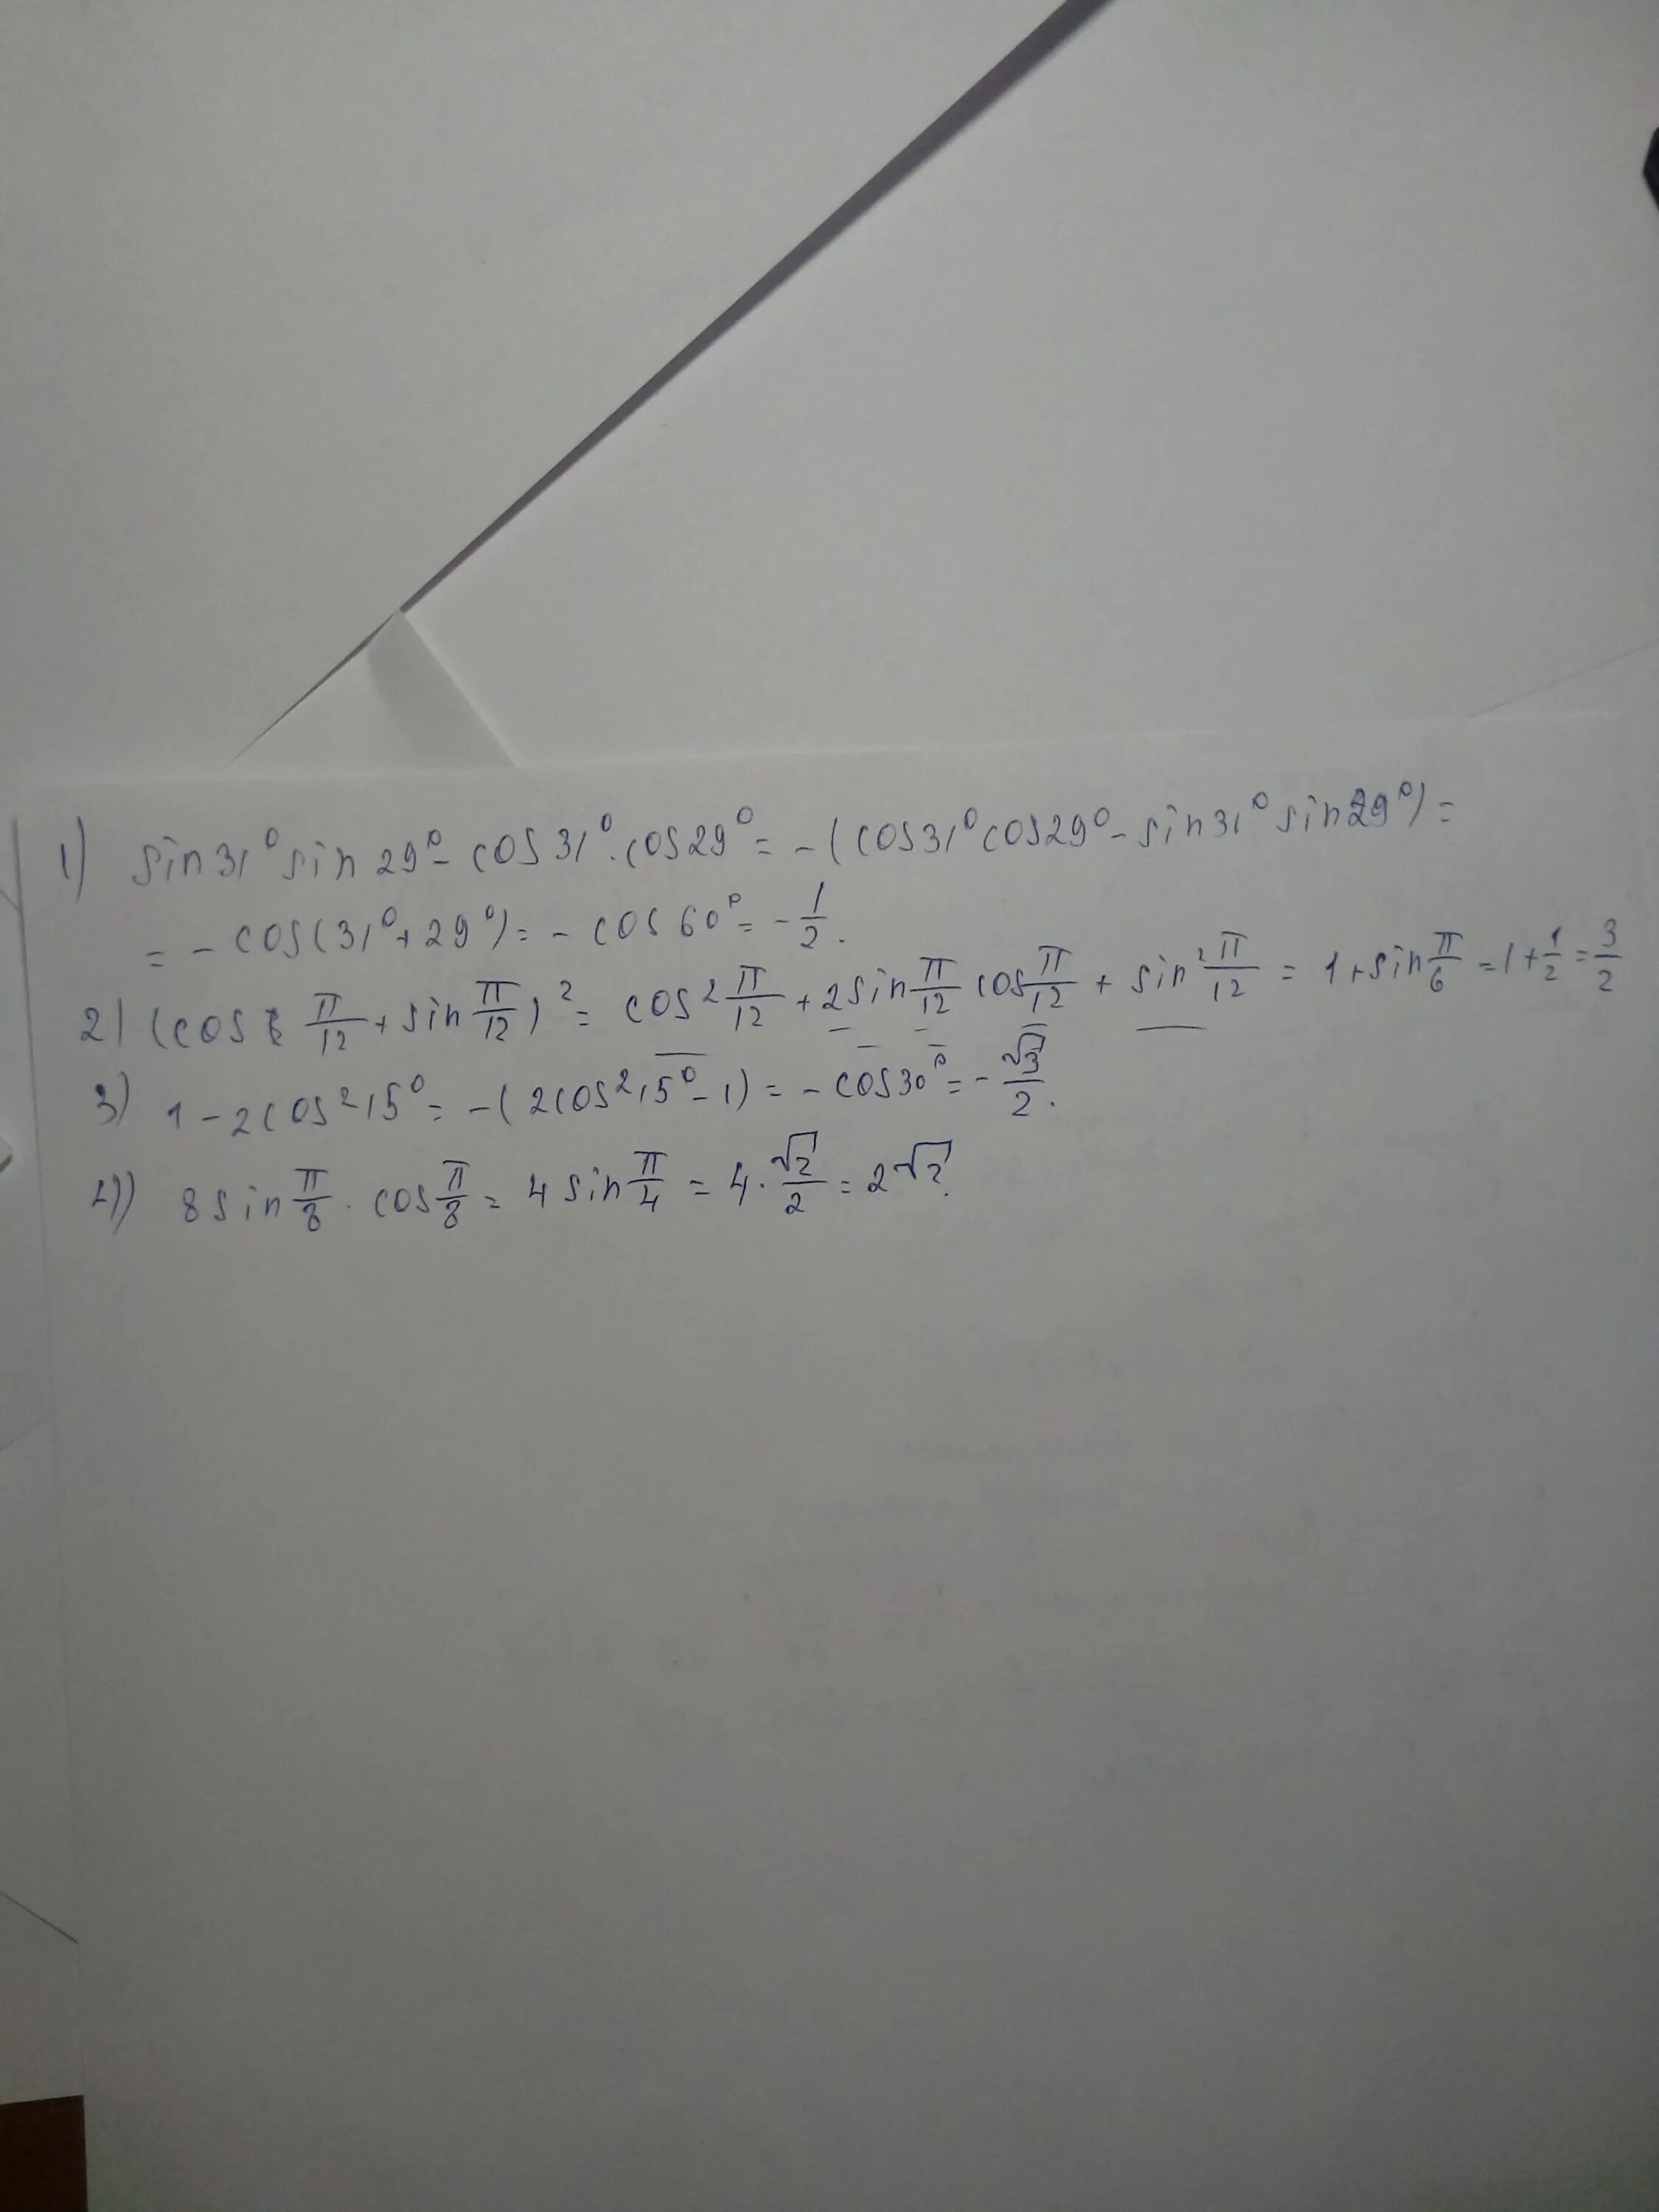 1) sin31° sin 29° - cos 31° · cos29° = -(cos31° cos29° - sin31° sin29°) =
= - cos(31° + 29°) = - cos 60° = - 1/2.
2) (cos π/12 + sin π/12)² = cos² π/12 + 2 sin π/12 cos π/12 + sin² π/12 = 1 + sin π/6 = 1 + 1/2 = 3/2
3) 1 - 2cos²15° = -(2cos²15° - 1) = - cos30° = - √3/2.
4) 8 sin π/8 · cos π/8 = 4 sin π/4 = 4 · √2/2 = 2√2.